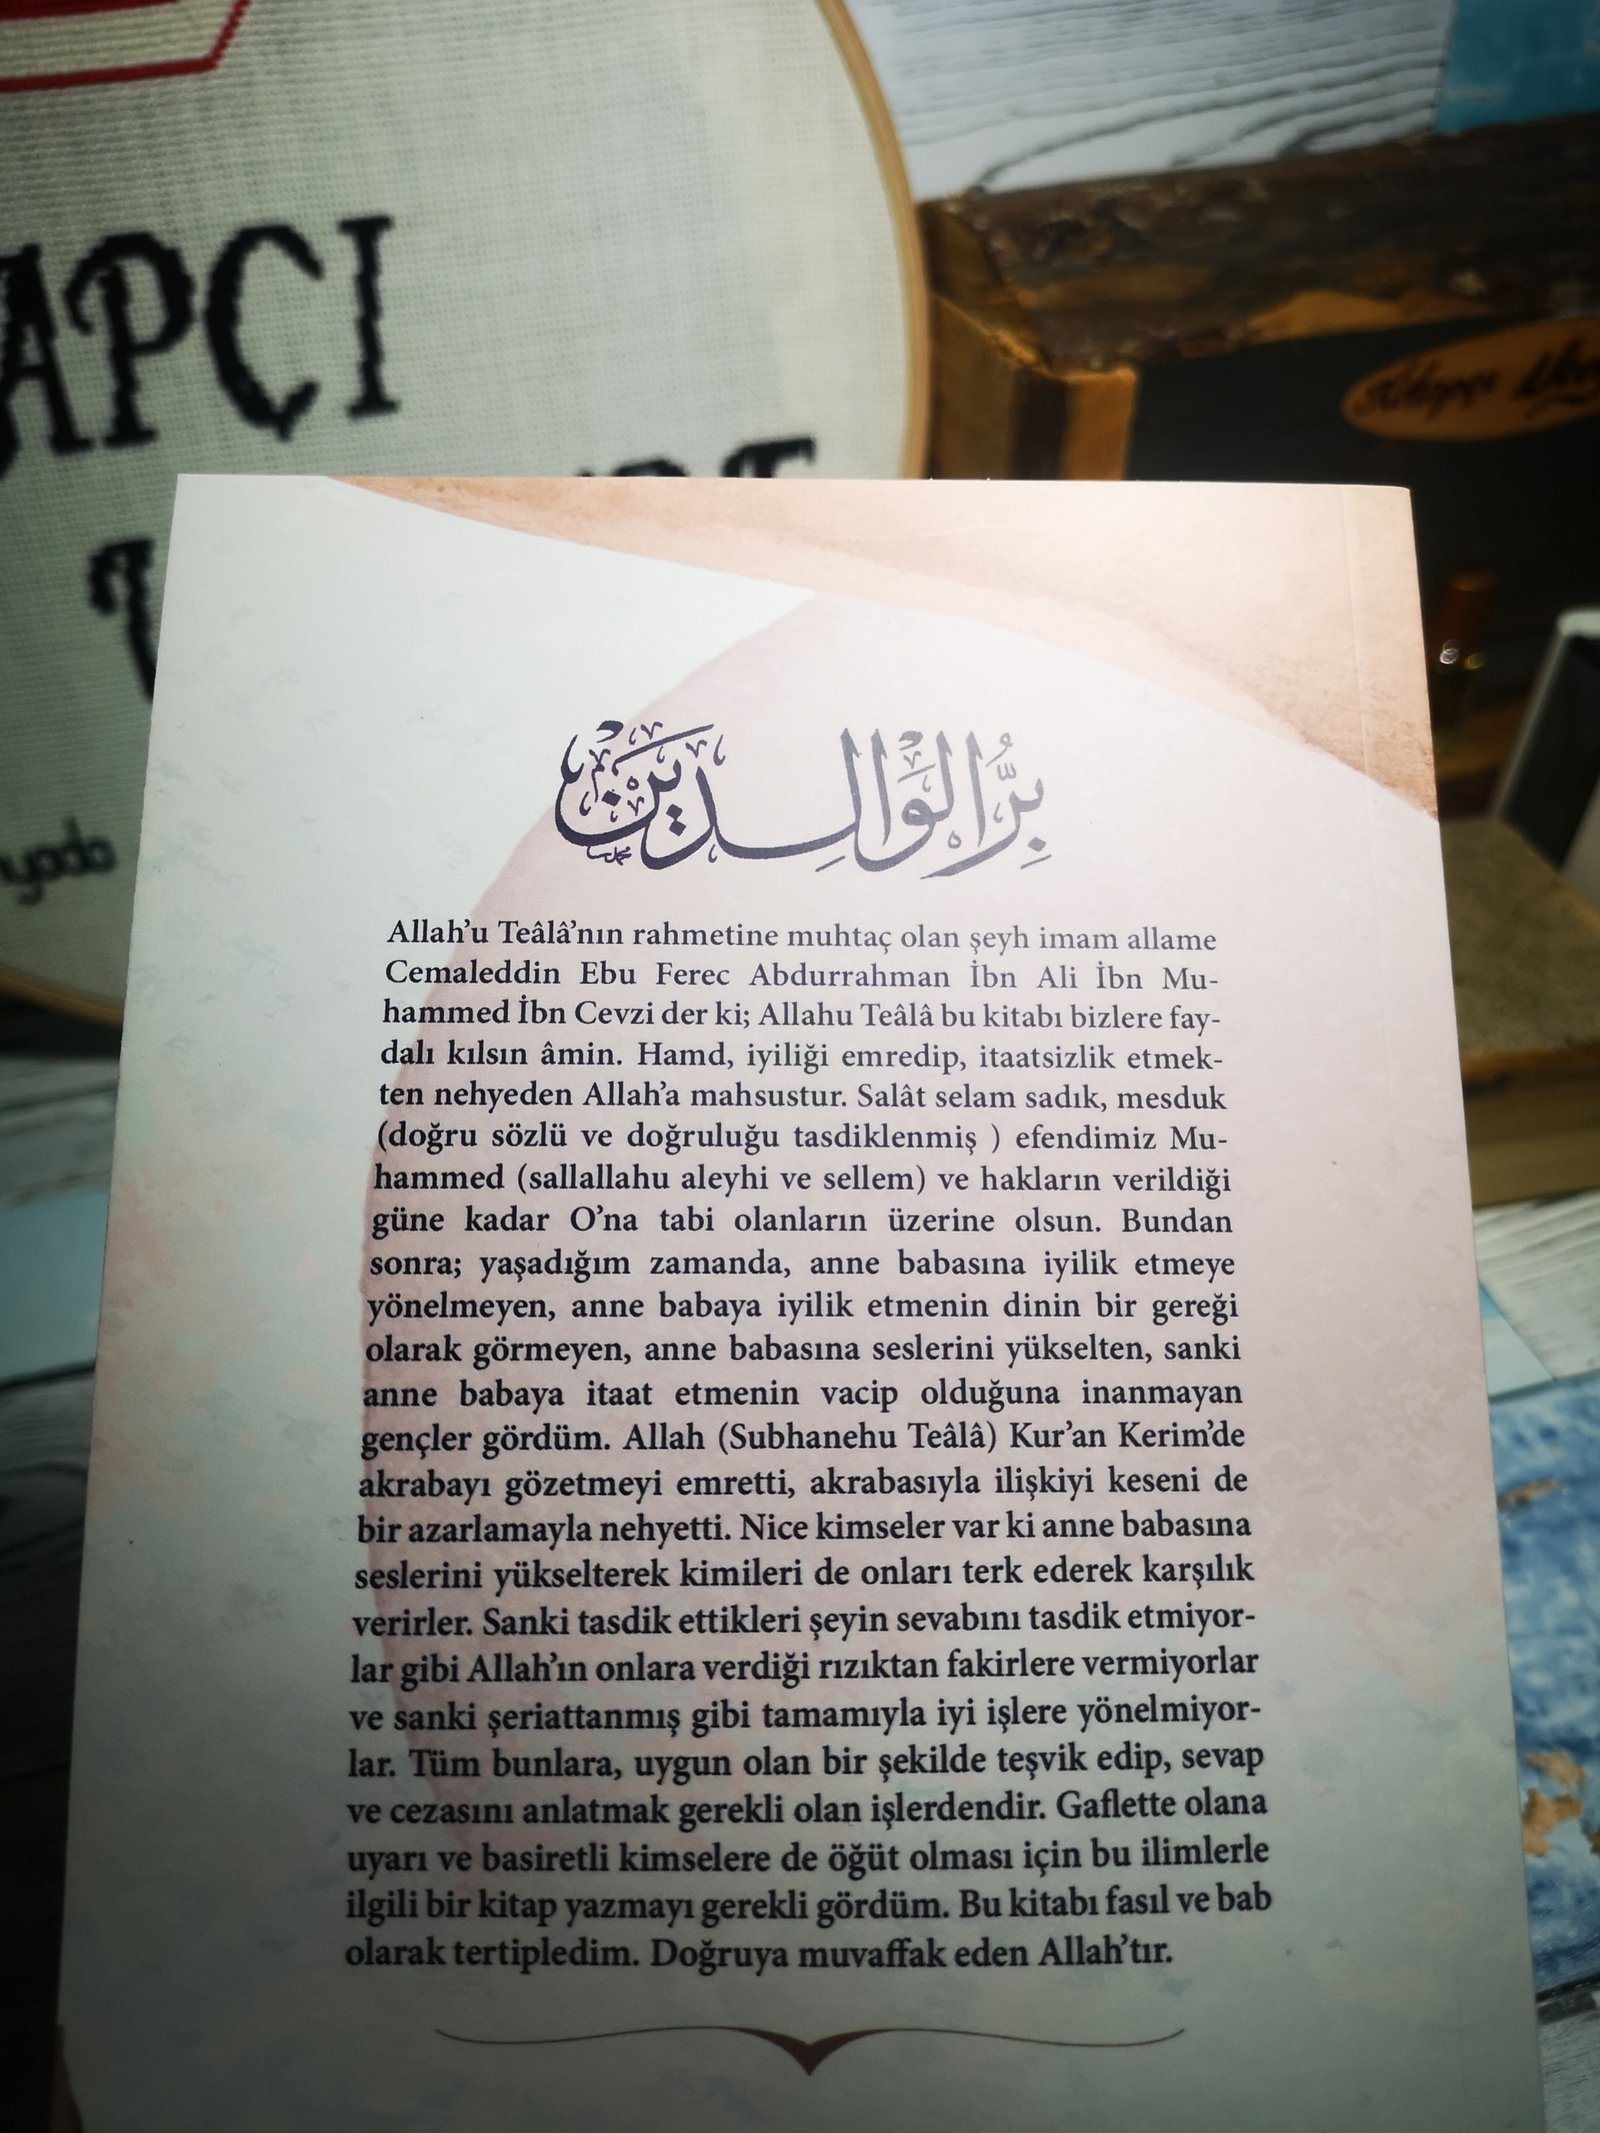 APÇI
yada
Kitapçı
بِرُّ الْوَالِدَيْنِ
Allah’u Teâlâ’nın rahmetine muhtaç olan şeyh imam allame
Cemaleddin Ebu Ferec Abdurrahman İbn Ali İbn Mu-
hammed İbn Cevzi der ki; Allahu Teâlâ bu kitabı bizlere fay-
dalı kılsın âmin. Hamd, iyiliği emredip, itaatsizlik etmek-
ten nehyeden Allah’a mahsustur. Salât selam sadık, mesduk
(doğru sözlü ve doğruluğu tasdiklenmiş ) efendimiz Mu-
hammed (sallallahu aleyhi ve sellem) ve hakların verildiği
güne kadar O’na tabi olanların üzerine olsun. Bundan
sonra; yaşadığım zamanda, anne babasına iyilik etmeye
yönelmeyen, anne babaya iyilik etmenin dinin bir gereği
olarak görmeyen, anne babasına seslerini yükselten, sanki
anne babaya itaat etmenin vacip olduğuna inanmayan
gençler gördüm. Allah (Subhanehu Teâlâ) Kur’an Kerim’de
akrabayı gözetmeyi emretti, akrabasıyla ilişkiyi keseni de
bir azarlamayla nehyetti. Nice kimseler var ki anne babasına
seslerini yükselterek kimileri de onları terk ederek karşılık
verirler. Sanki tasdik ettikleri şeyin sevabını tasdik etmiyor-
lar gibi Allah’ın onlara verdiği rızıktan fakirlere vermiyorlar
ve sanki şeriattanmış gibi tamamıyla iyi işlere yönelmiyor-
lar. Tüm bunlara, uygun olan bir şekilde teşvik edip, sevap
ve cezasını anlatmak gerekli olan işlerdendir. Gaflette olana
uyarı ve basiretli kimselere de öğüt olması için bu ilimlerle
ilgili bir kitap yazmayı gerekli gördüm. Bu kitabı fasıl ve bab
olarak tertipledim. Doğruya muvaffak eden Allah’tır.